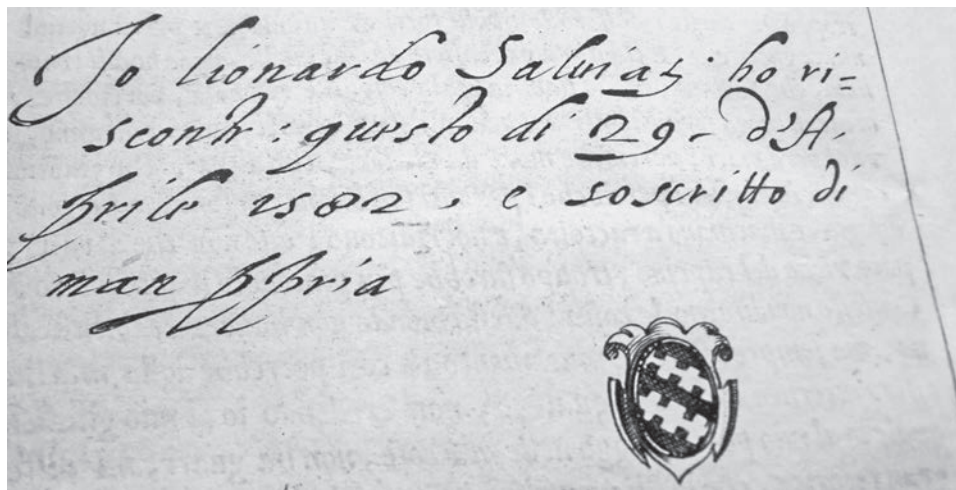 Io Lionardo Saluiati ho ri=
scontr: questo dì 29 - d'A
prile 1582, e soscritto di
man ppria